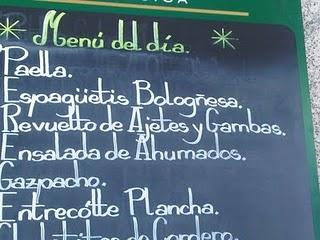 Menú del día.
Paella.
Espagüetis Bologñesa.
Revuelto de Ajetes y Gambas.
Ensalada de Ahumados.
Gazpacho.
Entrecótte Plancha.
Chuletitas de Cordero